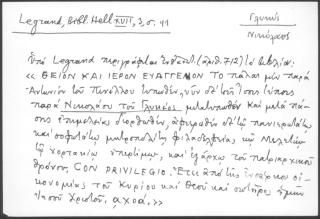 Legrand, Bibl. Hell. XVII, 3, σ. 41
Γλυκύς
Νικόλαος
Ὑπὸ Legrand περιγράφεται ἐνθαῦτα (ἀριθ. 712) τὸ βιβλίον:
« ΘΕΙΟΝ ΚΑΙ ΙΕΡΟΝ ΕΥΑΓΓΕΛΙΟΝ Τὸ πάλαι μὲν παρὰ
Ἀντωνίου τοῦ Πινέλλου τυπωθέν, νῦν δὲ τοῖς τύποις
παρὰ Νικολάου τοῦ Γλυκέος μετατυπωθὲν καὶ μετὰ πά-
σης ἐπιμελείας διορθωθέν, ἀφιερωθὲν δὲ τῷ πανιερωτάτῳ
καὶ σοφωτάτῳ μητροπολίτῃ Φιλαδελφείας κῷ Μελετίῳ
τῷ Χορτακίῳ ὑπερτίμῳ, καὶ ἐξάρχῳ τοῦ πατριαρχικοῦ
θρόνου, CON PRIVILEGIO. Ἔτει ἀπὸ τῆς ἐνσάρκου οἰ-
κονομίας τοῦ Κυρίου καὶ Θεοῦ καὶ σωτῆρος ἡμῶν
Ἰησοῦ Χριστοῦ, αχοα. »